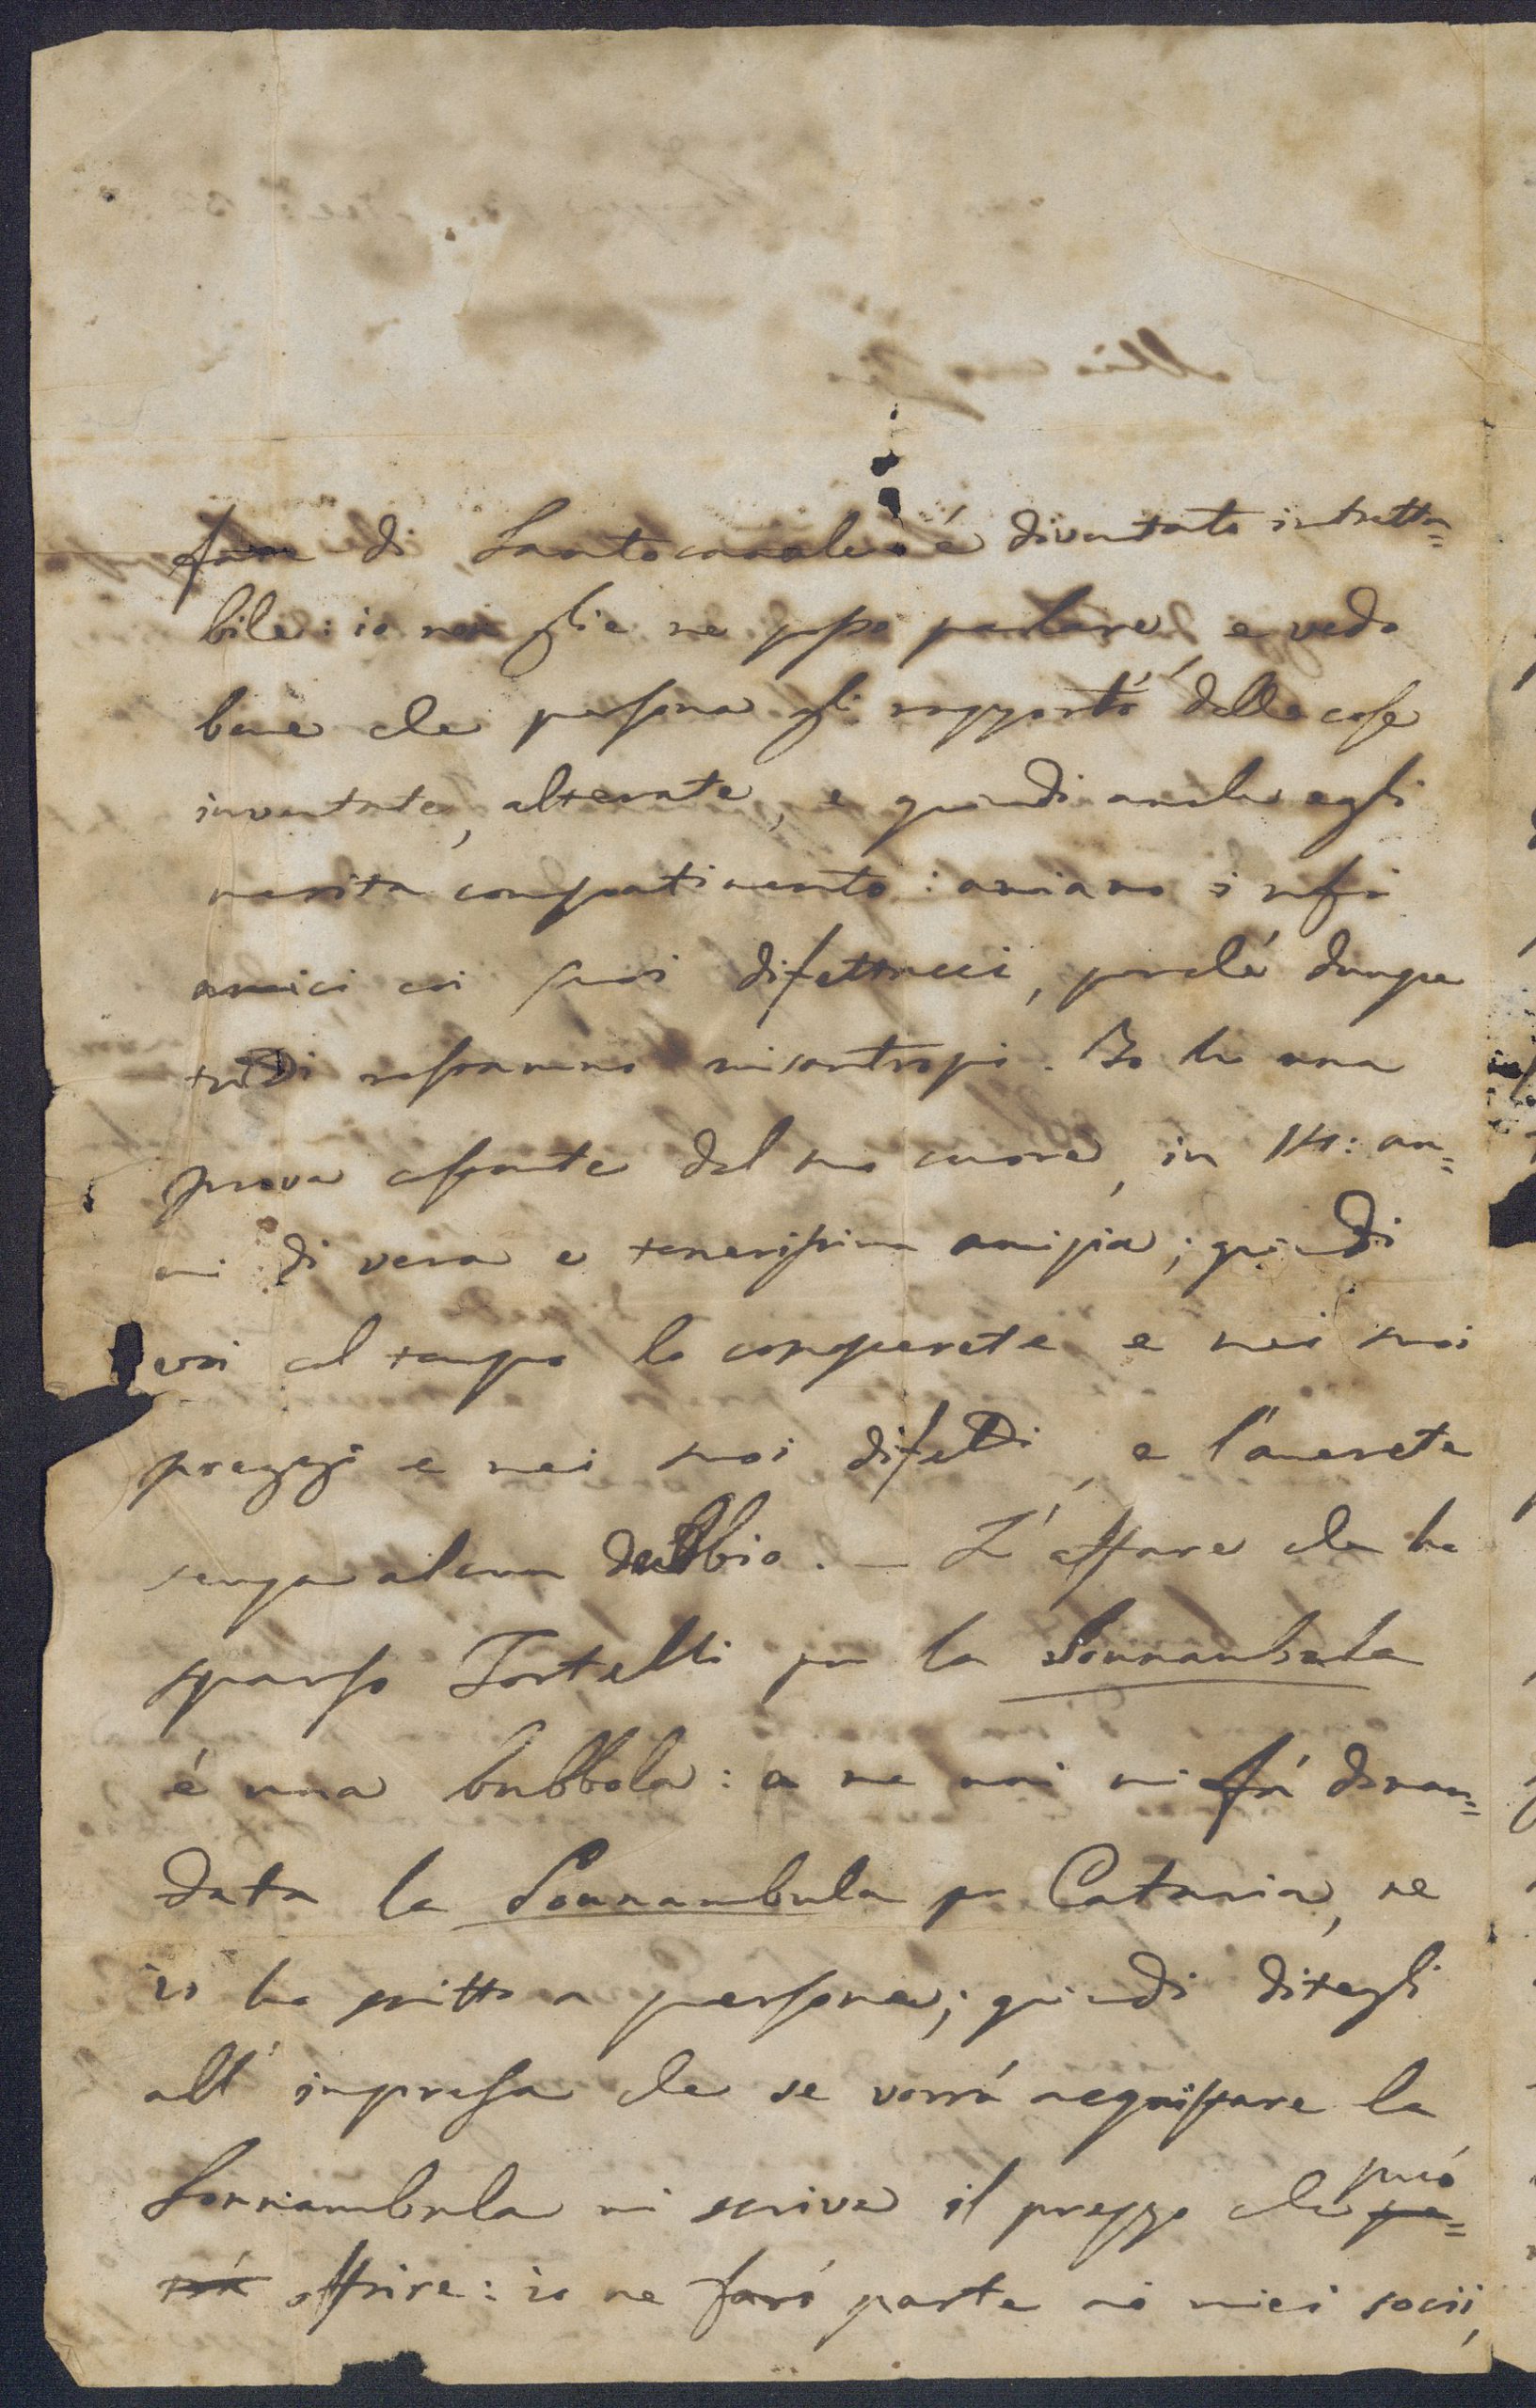 fare di Santocanale é diventato intratta=
bile: io non glie ne posso parlare, e vedo
bene che persona gli rapportó delle cose
inventate, alterate, e quindi anche egli
merita compatimento: amiamo i nostri
amici coi suoi difettucci, perché dunque
tutti resteremmo misantropi. Io ho una
prova costante del suo cuore, in 14: an=
ni di vera e tenerissima amicizia; quindi
voi col tempo lo conoscerete e nei suoi
preggi e nei suoi difetti, e l'amerete
senza alcun dubbio. — L'affare che ha
sparso Tortelli per la Sonnambula
é una bubbola: a me mai mi fú diman=
data la Sonnambula per Catania, ne
io ho scritto a persona; quindi ditegli
all' impresa che se vorrá acquistare la
Sonnambula mi scriva il prezzo che può
offrire: io ne faró parte ai miei socii,